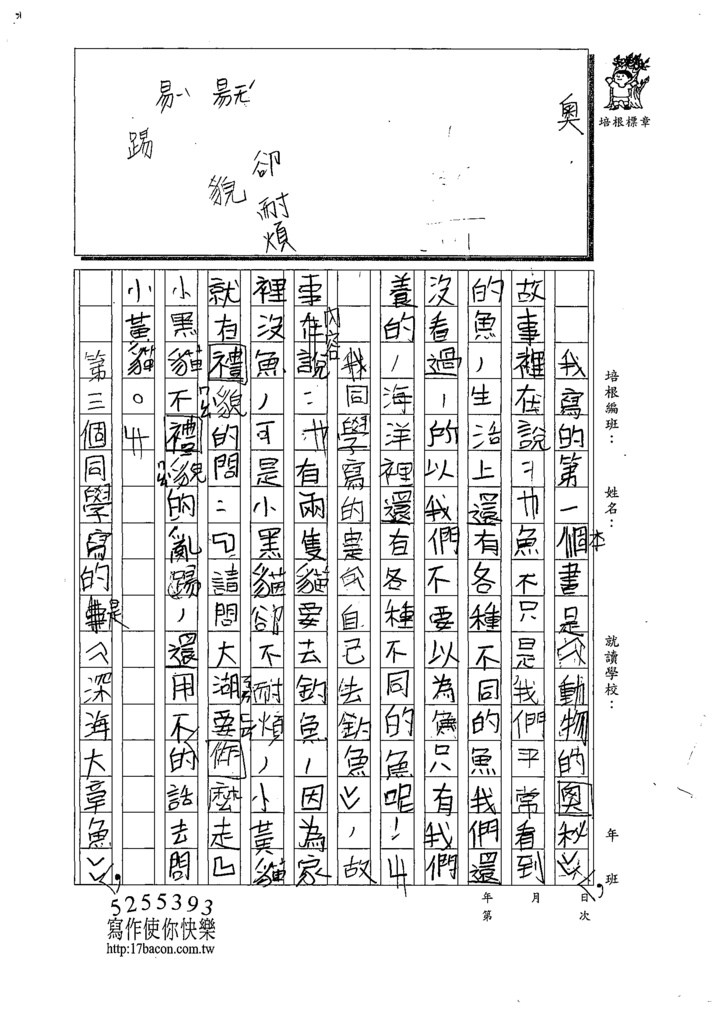 奧
卻
耐
煩
貌
踢
培根標章
培根編班：　姓名：　就讀學校：　年　班
年　月　日
第　次
我寫的第一個本書是︽動物的奧秘︾，
故事裡在說：　魚不只是我們平常看到
的魚，生活上還有各種不同的魚我們還
沒看過，所以我們不要以為魚只有我們
養的，海洋裡還有各種不同的魚呢！
我同學寫的是︽自己去釣魚︾，故
事內容在說：　有兩隻貓要去釣魚，因為家
裡沒魚，可是小黑貓卻不耐煩，小黃貓
就有禮貌的問：「請問大湖要怎麼走」
小黑貓不禮貌的亂踢，還用不的話去問
小黃貓。
第三個同學寫的是︽深海大章魚︾，
5255393
寫作使你快樂
http:17bacon.com.tw